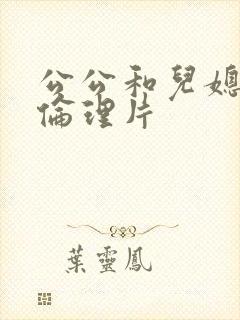 公公和兒媳
倫理片
葉靈鳳